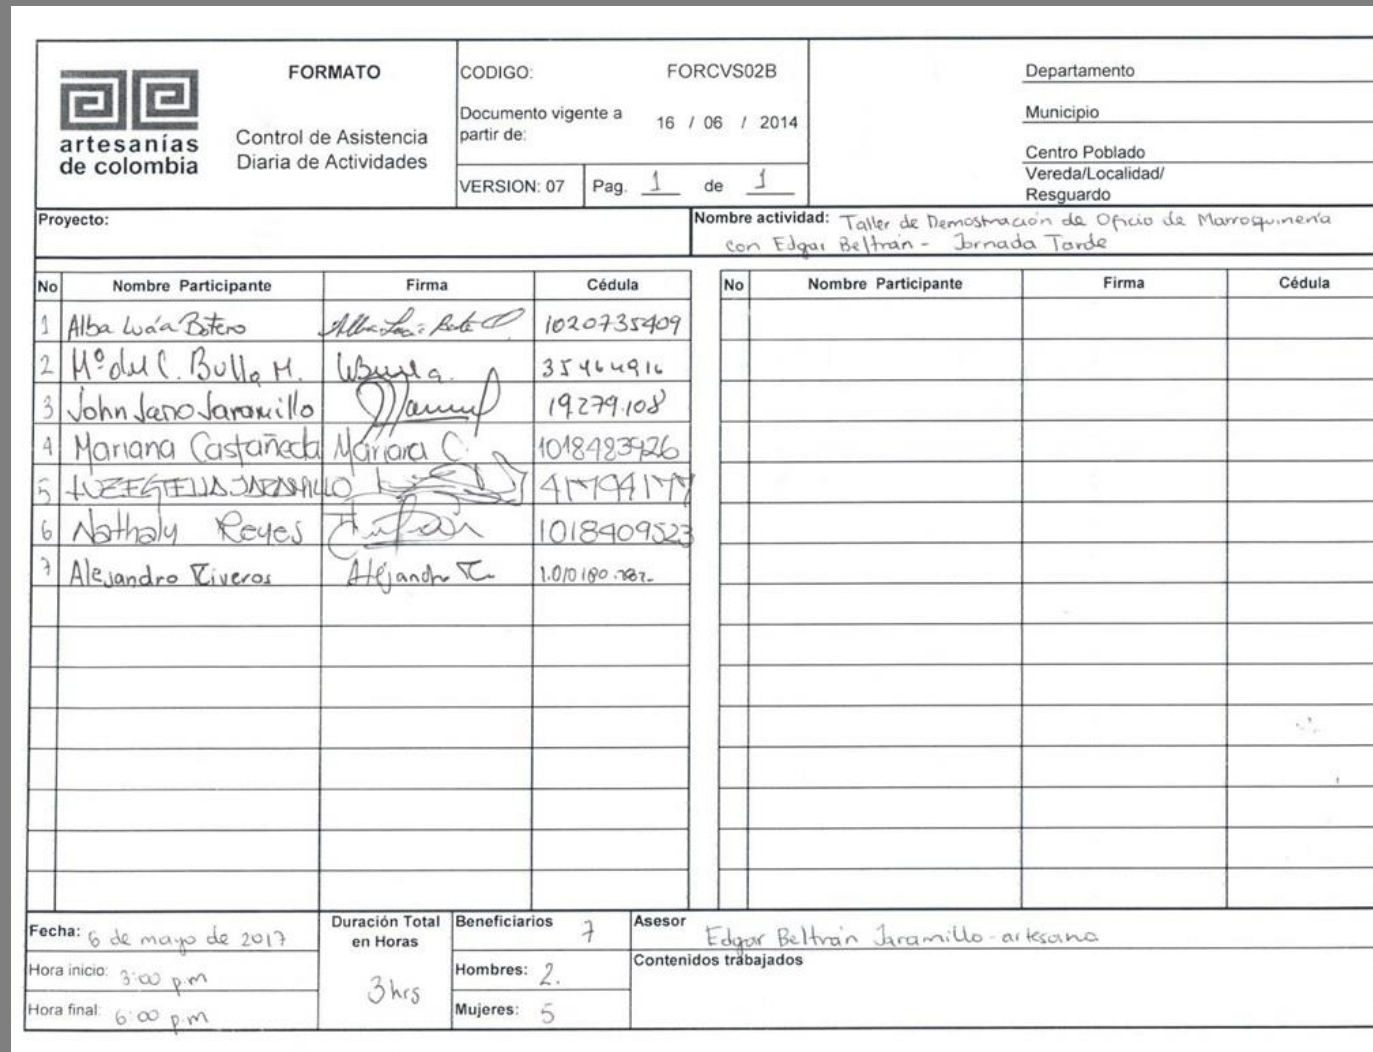 artesanías
de colombia
FORMATO
Control de Asistencia
Diaria de Actividades
CODIGO: FORCVS02B
Documento vigente a
partir de: 16 / 06 / 2014
VERSION: 07 Pag. 1 de 1
Departamento
Municipio
Centro Poblado
Vereda/Localidad/
Resguardo
Proyecto:
Nombre actividad: Taller de Demostración de Oficio de Marroquinería
con Edgar Beltrán - Jornada Tarde
No Nombre Participante Firma Cédula No Nombre Participante Firma Cédula
1 Alba Lucía Botero 1020735409
2 Mª del C. Bulla M. 35464916
3 John Jairo Jaramillo 19.279.108
4 Mariana Castañeda Mariana C. 1018483926
5 LUZ ESTELLA JARAMILLO 41794177
6 Nathaly Reyes 1018409523
7 Alejandro Riveros Alejandro R.
Fecha: 6 de mayo de 2017
Hora inicio: 3:00 p.m
Hora final: 6:00 p.m
Duración Total
en Horas
3 hrs
Beneficiarios 7
Hombres: 2.
Mujeres: 5
Asesor Edgar Beltrán Jaramillo - artesano
Contenidos trabajados